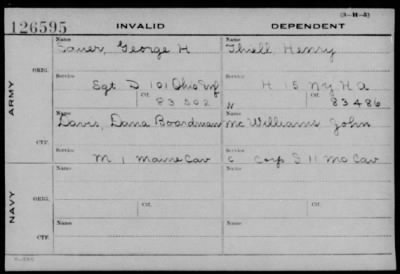 (3-H-3)
126595 INVALID DEPENDENT
Name Name
ARMY ORIG. Sauer, George H Thiell Henry
Service Service
Sgt D 101 Ohio Inf H 15 Ny H A
Ctf. 83502 Ctf. 83486
Name Name
CTF. Davis, Dana Boardman McWilliams John
Service Service
M 1 Maine Cav C Corp 11 Mo Cav
NAVY ORIG. Name Name
Service Ctf. Service Ctf.
CTF. Name Name
Service Service